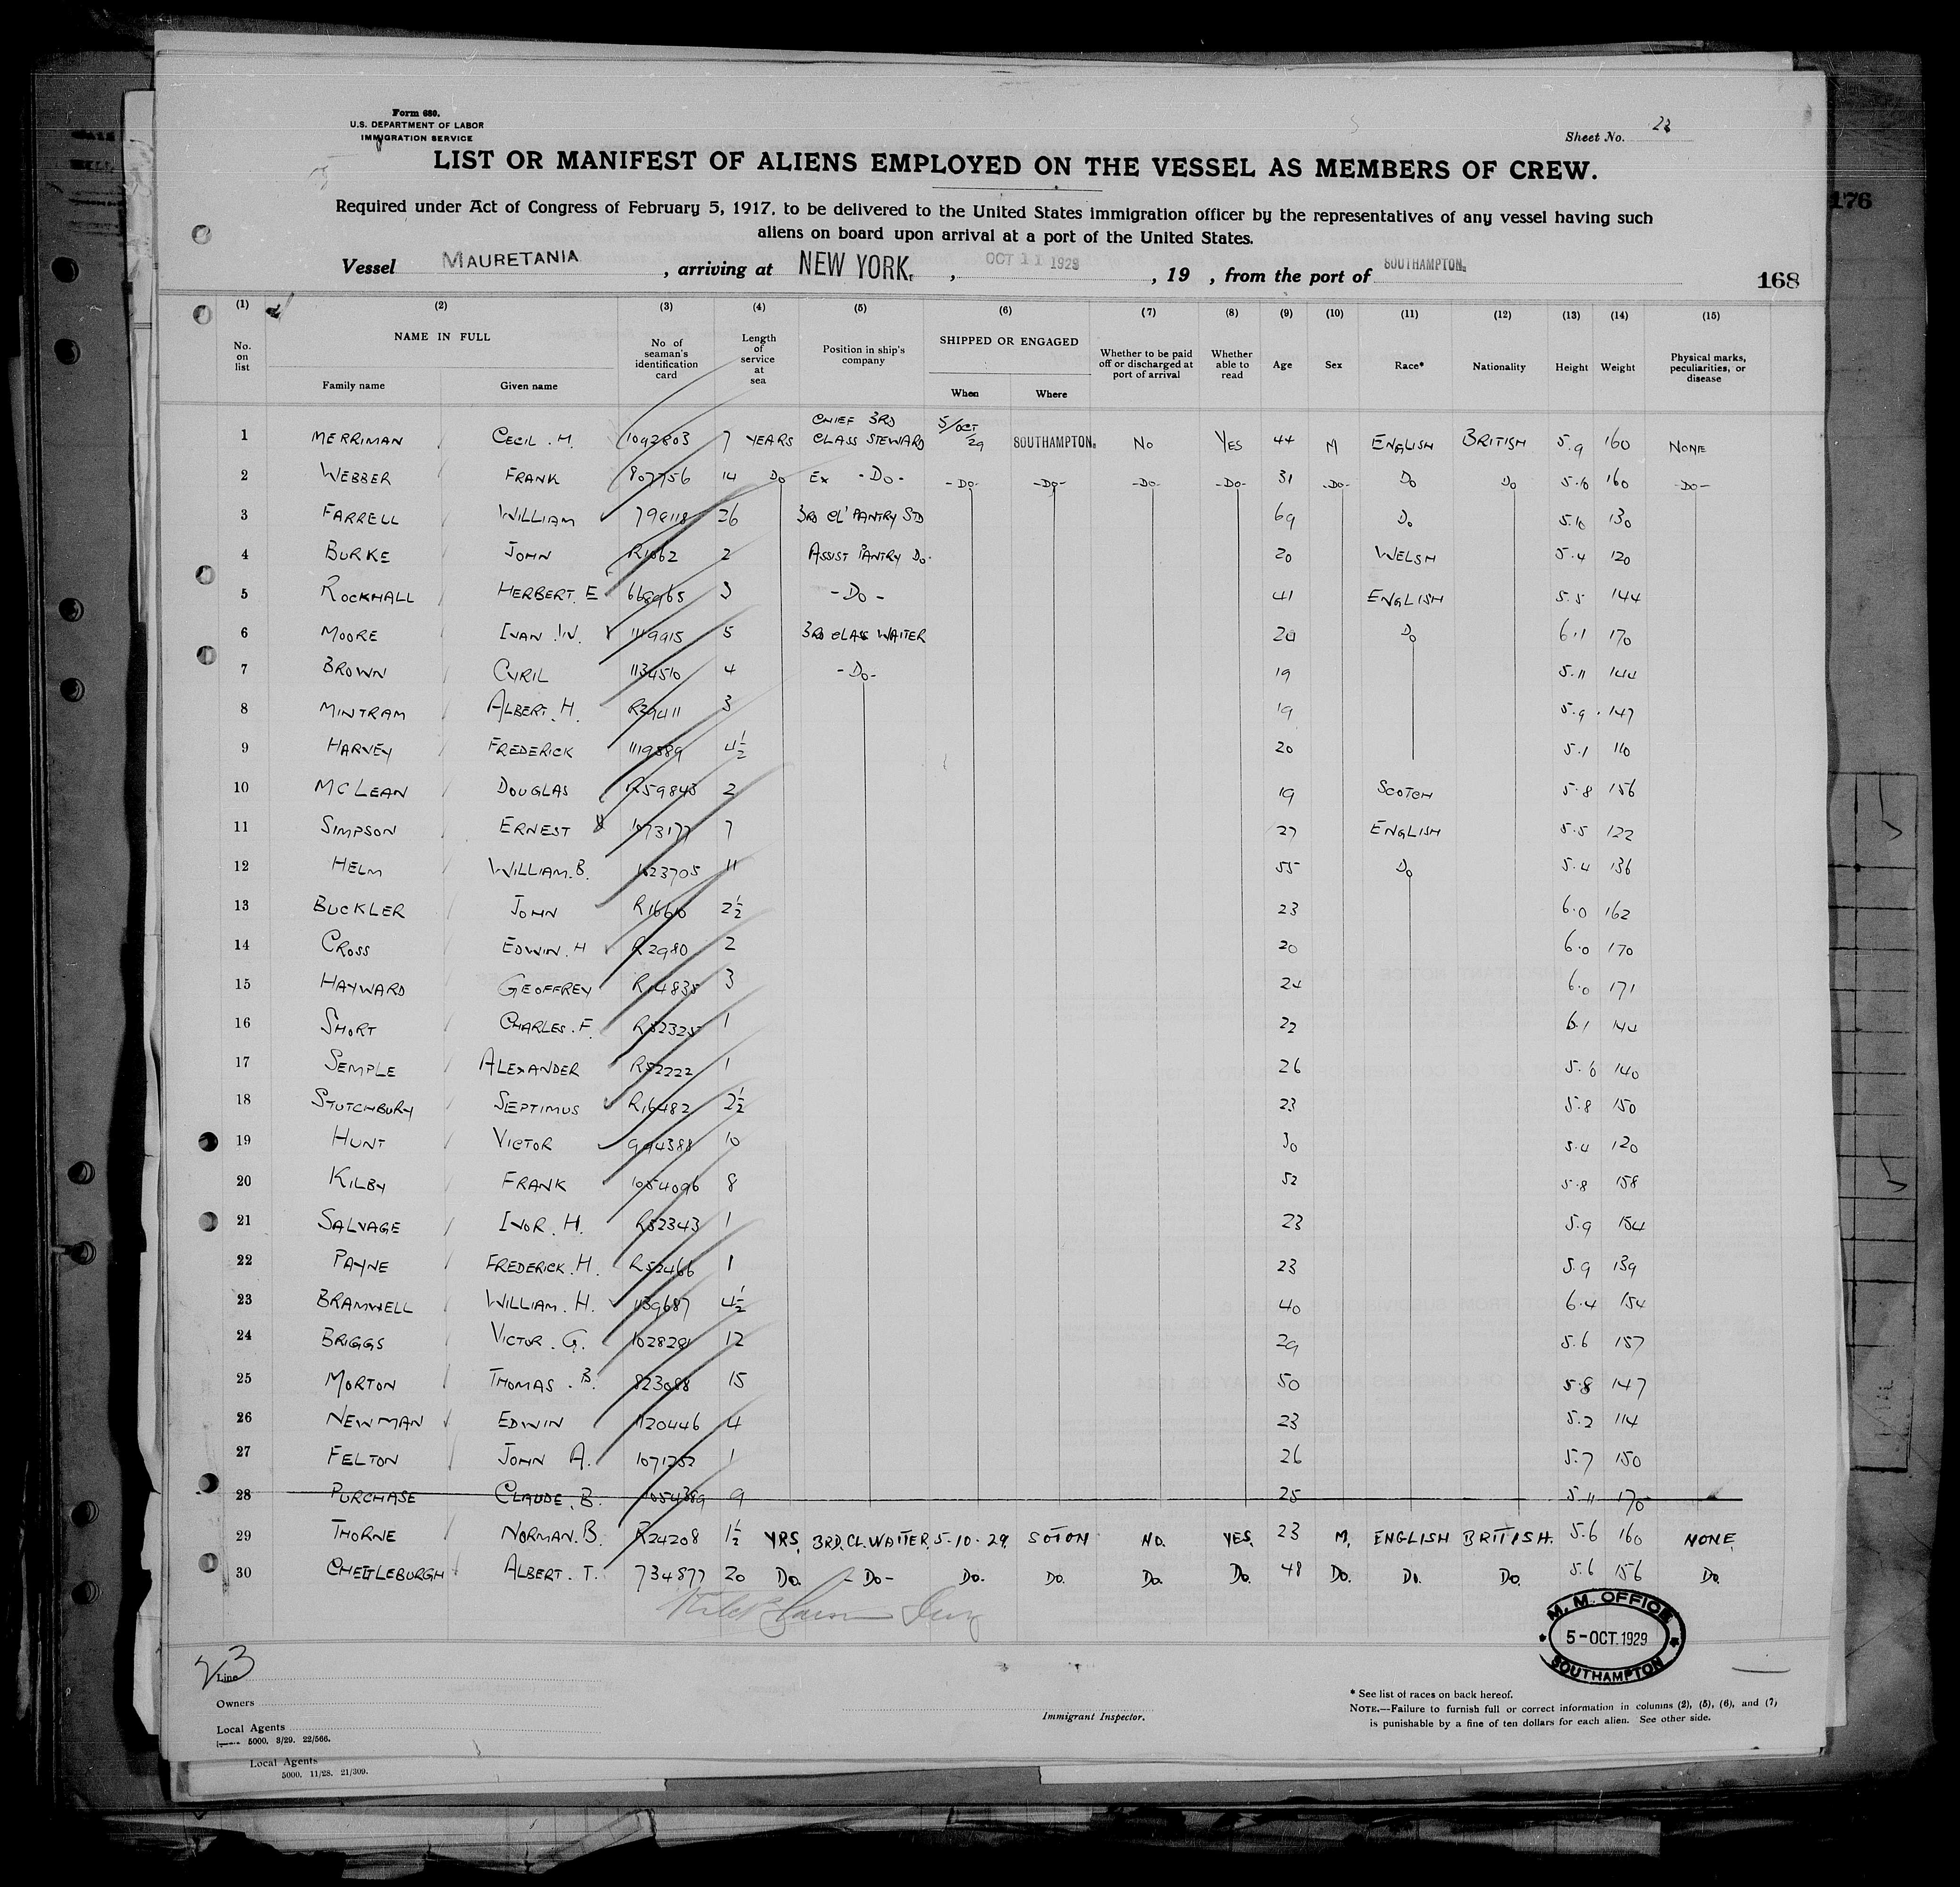 Form 680.
U.S. DEPARTMENT OF LABOR
IMMIGRATION SERVICE
Sheet No.
LIST OR MANIFEST OF ALIENS EMPLOYED ON THE VESSEL AS MEMBERS OF CREW.
Required under Act of Congress of February 5, 1917, to be delivered to the United States immigration officer by the representatives of any vessel having such
aliens on board upon arrival at a port of the United States.
176
Vessel MAURETANIA, arriving at NEW YORK, OCT 11 1929, 19 , from the port of SOUTHAMPTON.
168
(1) (2) (3) (4) (5) (6) (7) (8) (9) (10) (11) (12) (13) (14) (15)
No. on list NAME IN FULL Family name Given name No. of seaman's identification card Length of service at sea Position in ship's company SHIPPED OR ENGAGED When Where Whether to be paid off or discharged at port of arrival Whether able to read Age Sex Race* Nationality Height Weight Physical marks, peculiarities, or disease
1 MERRIMAN CECIL. H. 1092803 7 YEARS CHIEF 3RD CLASS STEWARD 5/OCT/29 SOUTHAMPTON. NO YES 44 M ENGLISH BRITISH 5.9 160 NONE
2 WEBBER FRANK 807756 14 DO EX -DO- -DO- -DO- -DO- -DO- 31 -DO- DO DO 5.10 160 -DO-
3 FARRELL WILLIAM 26 3RD CL' PANTRY STD 69 DO 5.10 130
4 BURKE JOHN 2 ASSIST PANTRY DO. 20 WELSH 5.4 120
5 ROCKHALL HERBERT. E 668965 3 -DO- 41 ENGLISH 5.5 144
6 MOORE IVAN .W. 1119915 5 3RD CLASS WAITER 20 DO 6.1 170
7 BROWN CYRIL 1134510 4 -DO- 19 5.11 144
8 MINTRAM ALBERT. H. R29411 3 19 5.9 147
9 HARVEY FREDERICK 1119889 4½ 20 5.1 110
10 MCLEAN DOUGLAS R59843 2 19 SCOTCH 5.8 156
11 SIMPSON ERNEST 1073177 7 27 ENGLISH 5.5 122
12 HELM WILLIAM. B. 11 55 DO 5.4 136
13 BUCKLER JOHN 2½ 23 6.0 162
14 CROSS EDWIN. H R2980 2 20 6.0 170
15 HAYWARD GEOFFREY R14835 3 24 6.0 171
16 SHORT CHARLES. F. 1 22 6.1 144
17 SEMPLE ALEXANDER R52222 1 26 5.6 140
18 STUTCHBURY SEPTIMUS R16482 2½ 23 5.8 150
19 HUNT VICTOR 994388 10 30 5.4 120
20 KILBY FRANK 1054096 8 52 5.8 158
21 SALVAGE IVOR. H. R52343 1 23 5.9 154
22 PAYNE FREDERICK. H. R52466 1 23 5.9 139
23 BRAMWELL WILLIAM. H. 1139687 4½ 40 6.4 154
24 BRIGGS VICTOR. G. 12 29 5.6 157
25 MORTON THOMAS. B. 823088 15 50 5.8 147
26 NEWMAN EDWIN 1120446 4 23 5.2 114
27 FELTON JOHN A. 1071252 1 26 5.7 150
28 PURCHASE CLAUDE. B. 1054389 9 25 5.11 170
29 THORNE NORMAN. B. R24208 1½ YRS. 3RD. CL. WAITER. 5-10-29. SOTON NO. YES. 23 M. ENGLISH BRITISH. 5.6 160 NONE.
30 CHETTLEBURGH ALBERT. T. 734877 20 DO. -DO- DO. DO. DO. DO. 48 DO. DO. DO. 5.6 156 DO.
M. M. OFFICE
5-OCT.1929
SOUTHAMPTON
23
Line
Owners
Local Agents
5000. 3/29. 22/566.
Immigrant Inspector.
* See list of races on back hereof.
NOTE.—Failure to furnish full or correct information in columns (2), (5), (6), and (7)
is punishable by a fine of ten dollars for each alien. See other side.
Local Agents
5000. 11/28. 21/309.